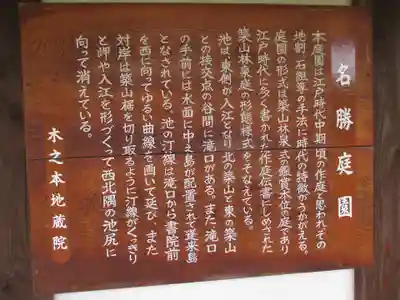 名勝庭園
本庭園は江戸時代中期頃の作庭と思われその
地割、石組等の手法に時代の特徴がうかがえる。
庭園の形式は築山林泉式の鑑賞本位の庭であり
江戸時代に多く書かれた作庭伝書にしめされた
築山林泉庭の形態様式をそなえている。
池は東側が入江となり北の築山と東の築山
との接交点の谷間に滝口がある。また滝口
の手前には水面に中え島が配置されて蓬来島
となされている。池の汀線は滝口から書院前
を西に向ってゆるい曲線を画いて延び また
対岸は築山裾を切り取るように汀線がくっきり
と岬や入江を形づくって西北隅の池尻に
向って消えている。
木之本地蔵院